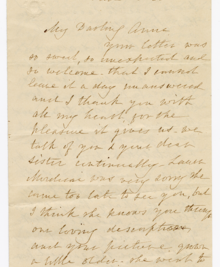 My Darling Anna
your letter was
so sweet, so unexpected and
so welcome that I cannot
leave it a day unanswered
and I thank you with
all my heart for the
pleasure it gives us. we
talk of you & your dear
sister continually. Laura
was very sorry she
came too late to see you, but
I think she knows you through
our loving descriptions
and your picture, given
a little older. she went to